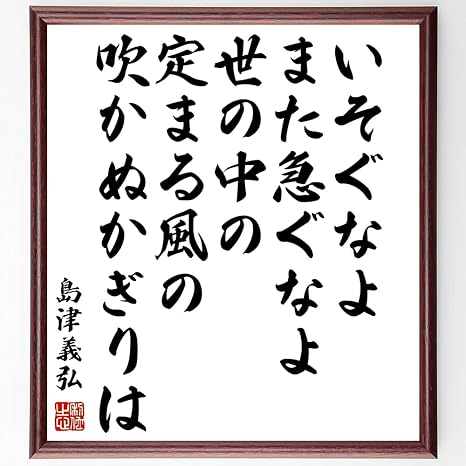 いそぐなよ
また急ぐなよ
世の中の
定まる風の
吹かぬかぎりは
島津義弘